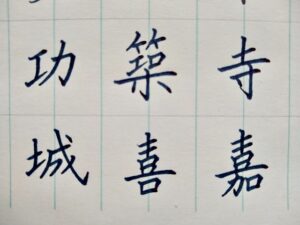 寺嘉
築喜
功城